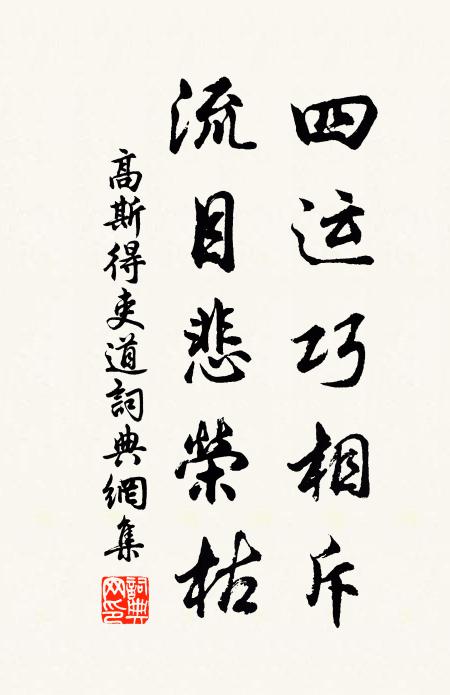 四运巧相斥
流目悲榮枯
高斯得吏道詞典網集
詞典网印